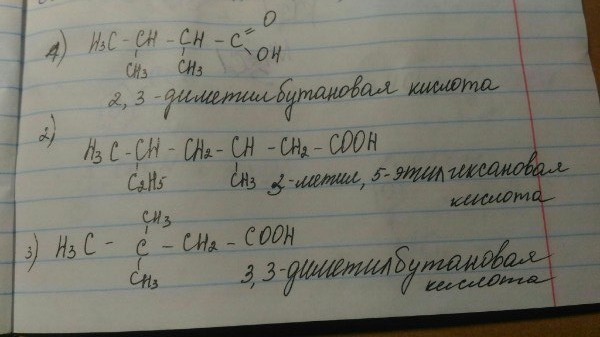 1) H₃C - CH - CH - C = O
OH
CH₃ CH₃
2,3-диметилбутановая кислота
2) H₃C - CH - CH₂ - CH - CH₂ - COOH
C₂H₅ CH₃
3-метил, 5-этилгексановая
кислота
CH₃
3) H₃C - C - CH₂ - COOH
CH₃
3,3-диметилбутановая
кислота